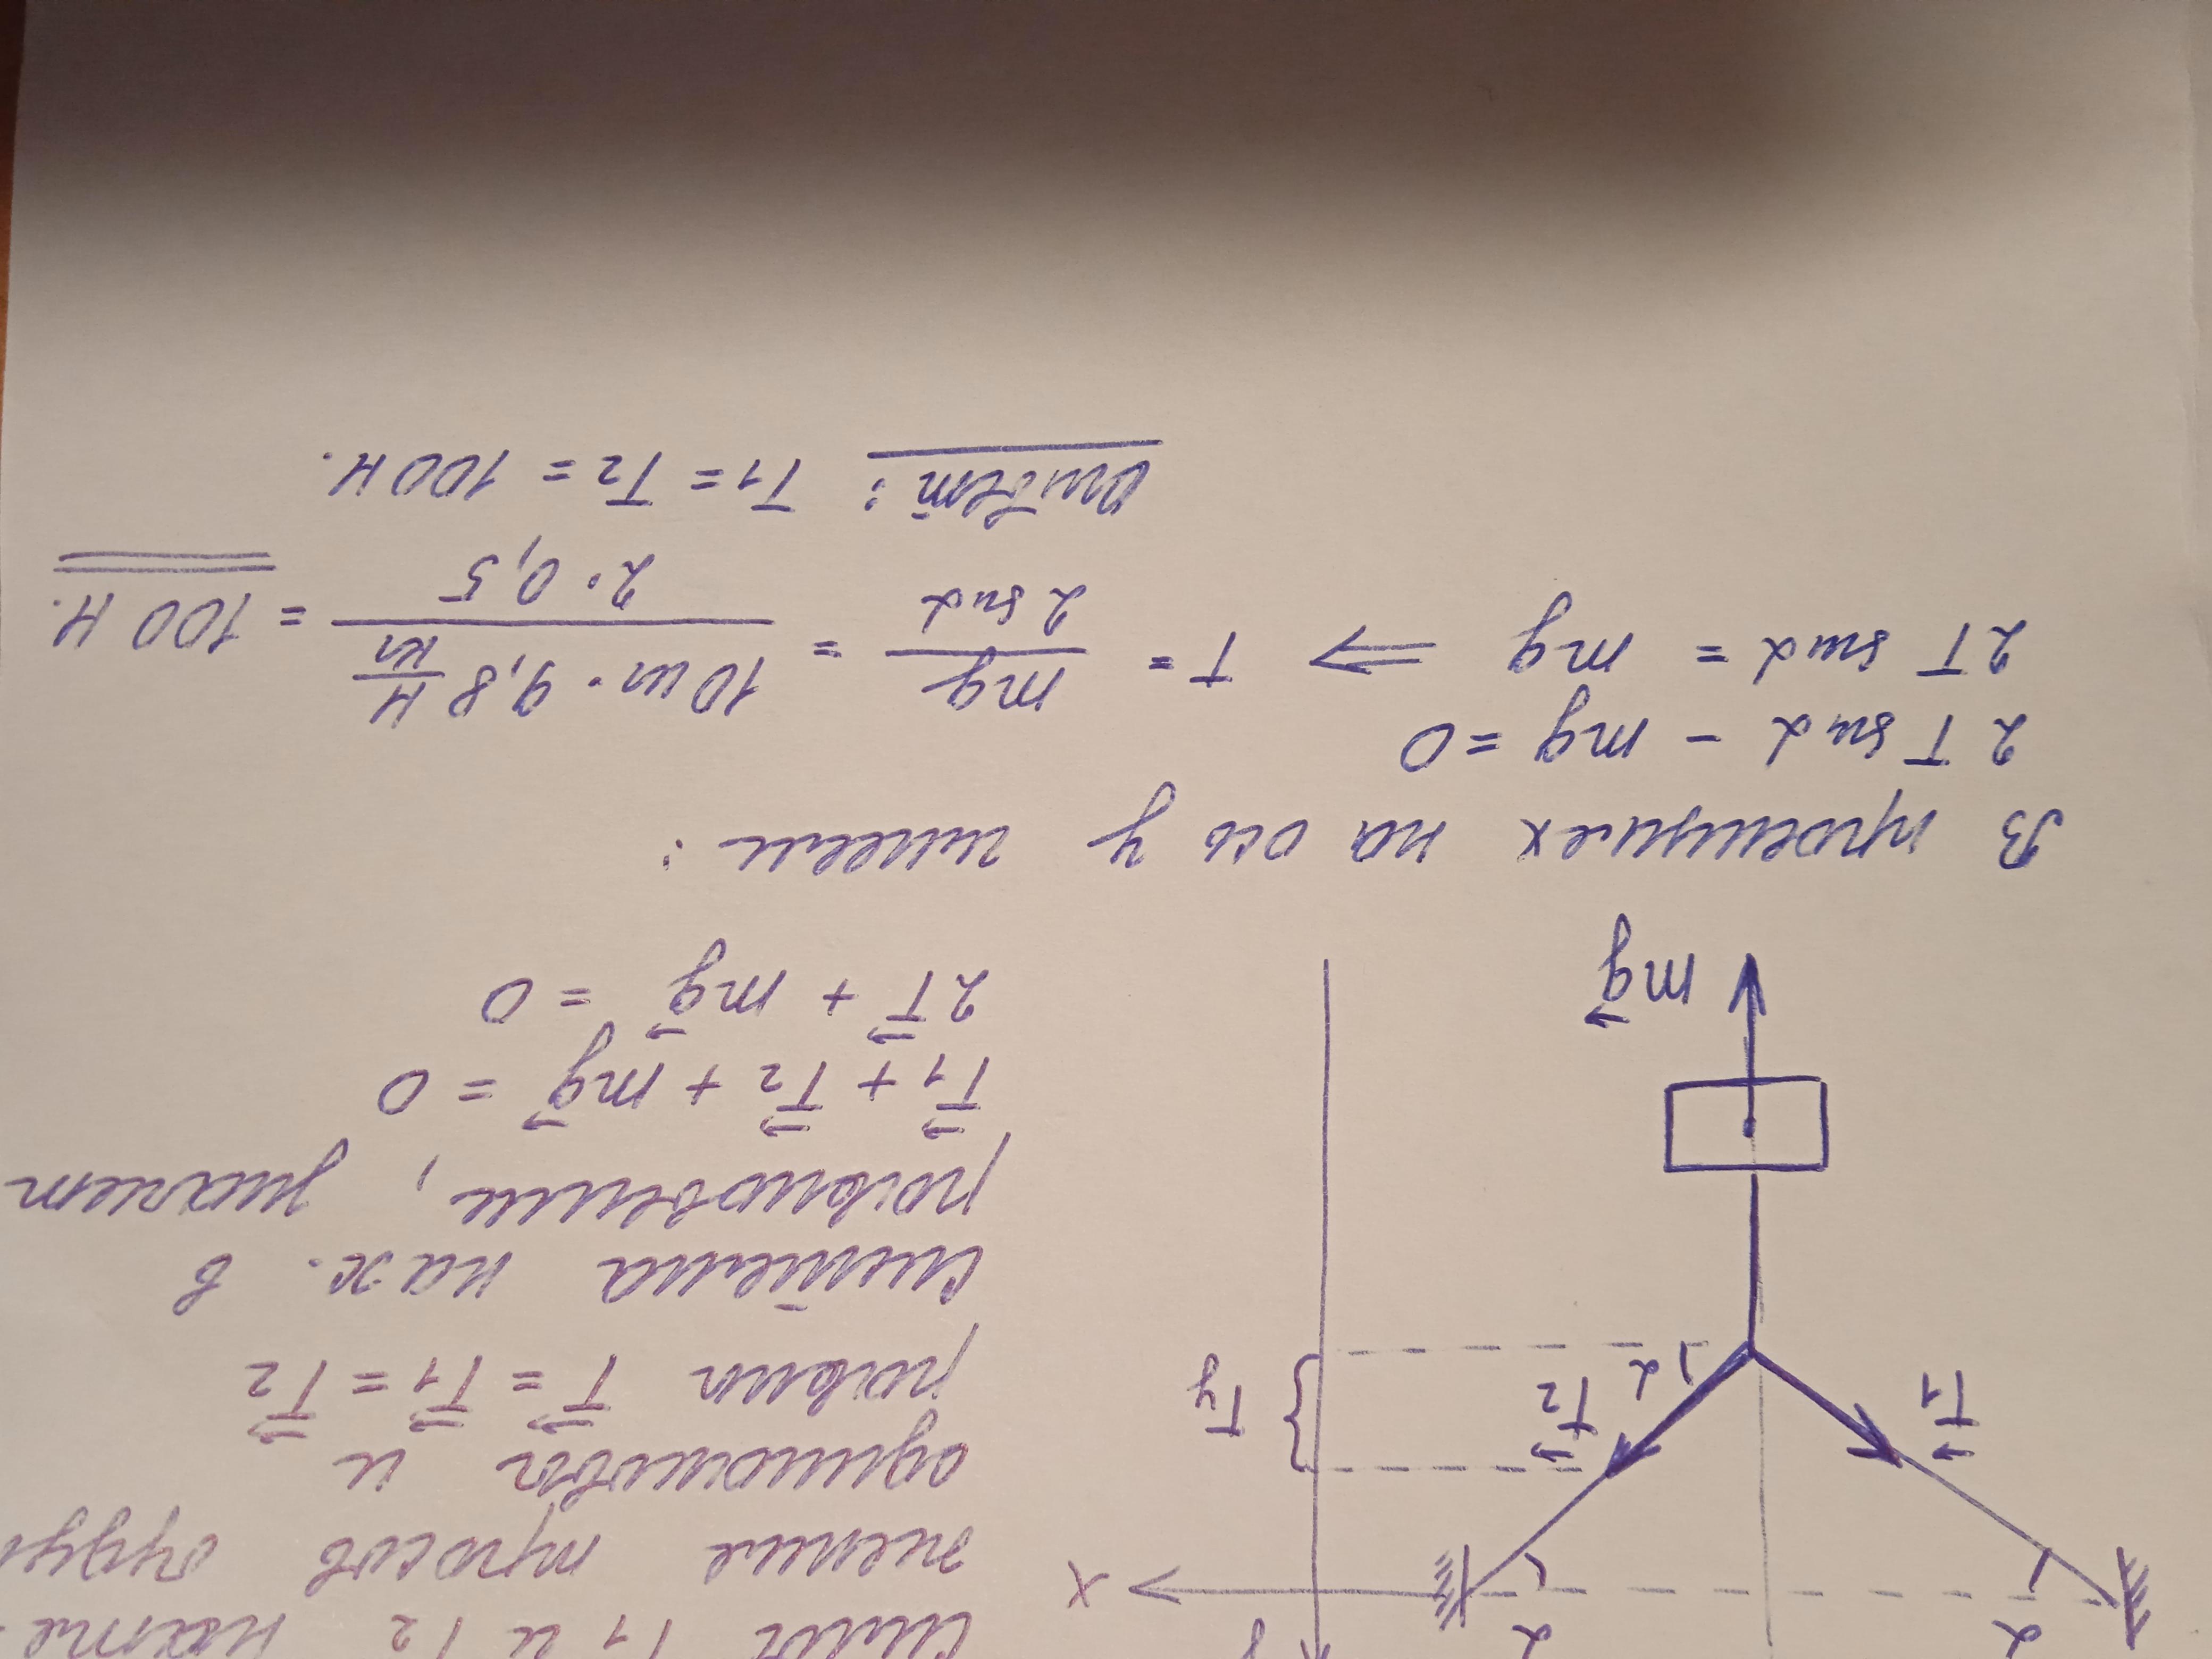 силы T₁ и T₂ натя-
жение тросов буду
одинаковы и
равны T⃗ = T⃗₁ = T⃗₂
система нах. в
равновесии, значит
T⃗₁ + T⃗₂ + mg⃗ = 0
2T⃗ + mg⃗ = 0
α
α
y
x
T⃗₁
T⃗₂
α
Ty
mg⃗
В проекциях на ось y имеем:
2T sin α - mg = 0
2T sin α = mg ⟹ T = mg / 2 sin α = 10 кг · 9,8 Н/кг / 2 · 0,5 = 100 Н.
Ответ: T₁ = T₂ = 100 Н.